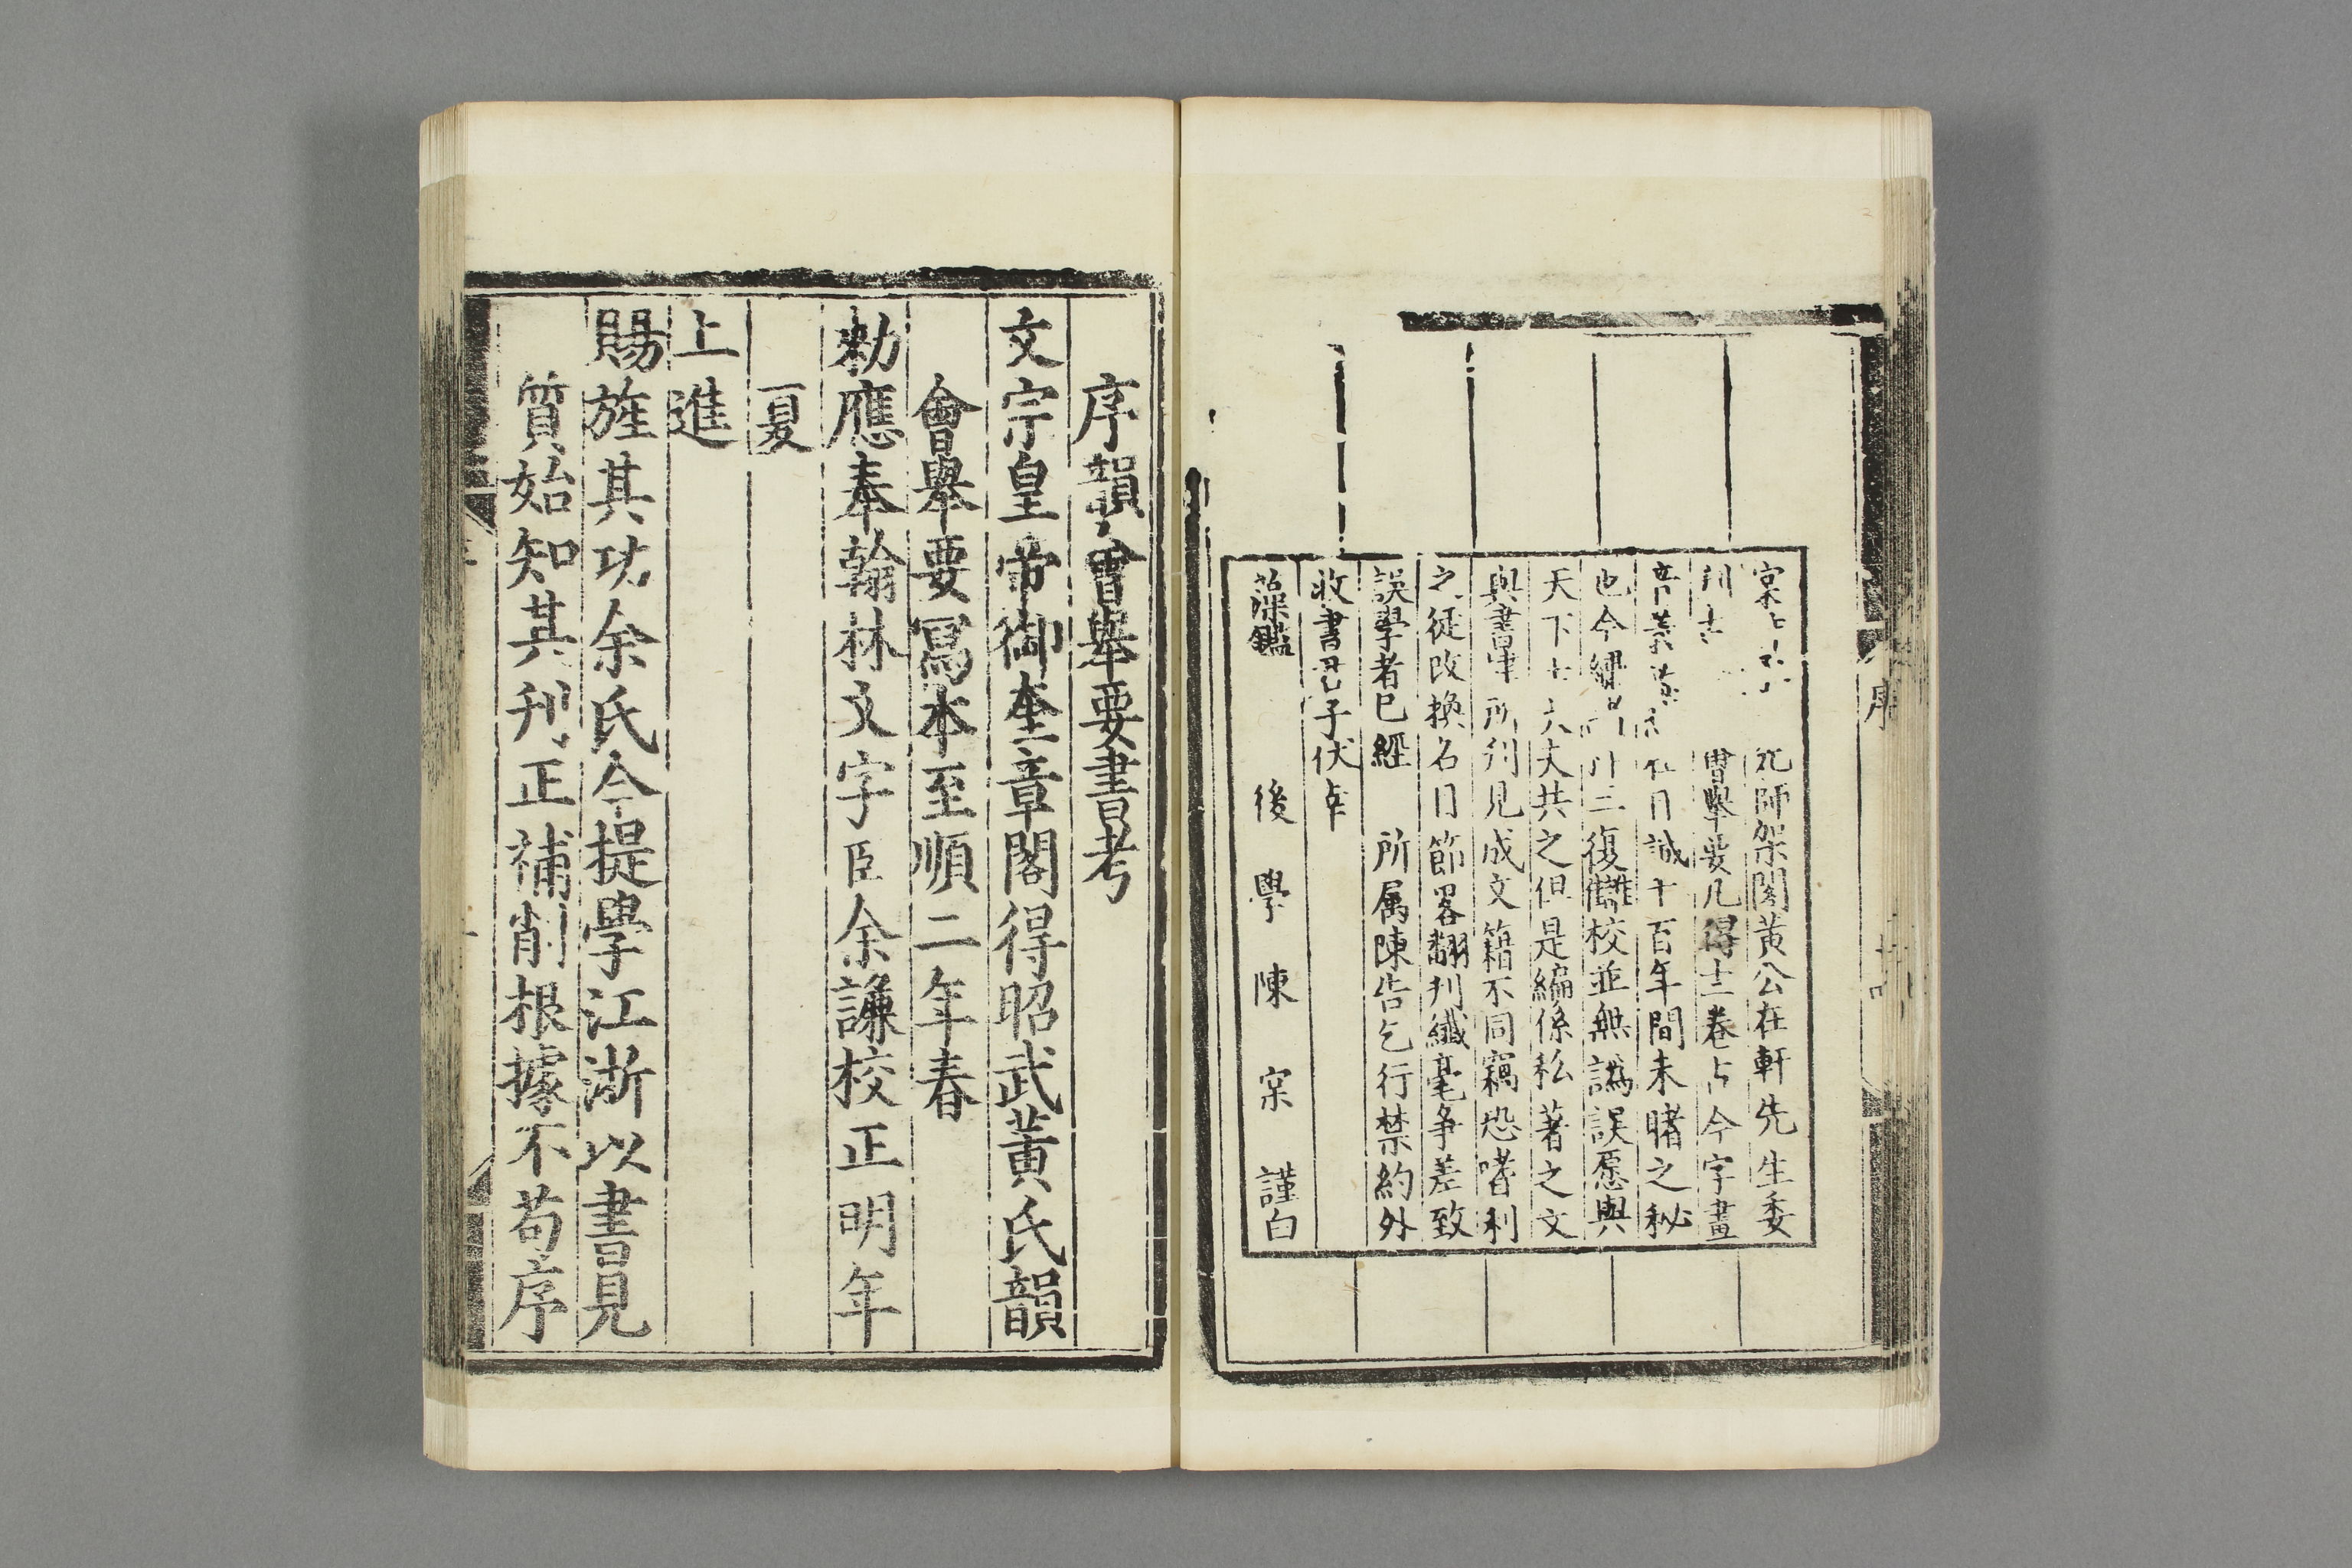 宲
先師架閣黃公在軒先生委
刊
會舉要凡卅卷古今字畫
音義
誠千百年間未睹之秘
也今繡
三復讎校並無譌誤愿與
天下士
夫共之但是編係私著之文
與書肆所刋見成文籍不同竊恐嗜利
之徒改換名目節畧翻刋纖毫爭差致
誤學者已經 所属陳告乞行禁約外
收書君子伏幸
藻鑑 後學陳宲謹白
序
序韻會舉要書考
文宗皇帝御奎章閣得昭武黃氏韻
會舉要寫本至順二年春
勑應奉翰林文字臣余謙校正明年
夏
上進
賜旌其功余氏今提學江浙以書見
質始知其刋正補削根據不苟序